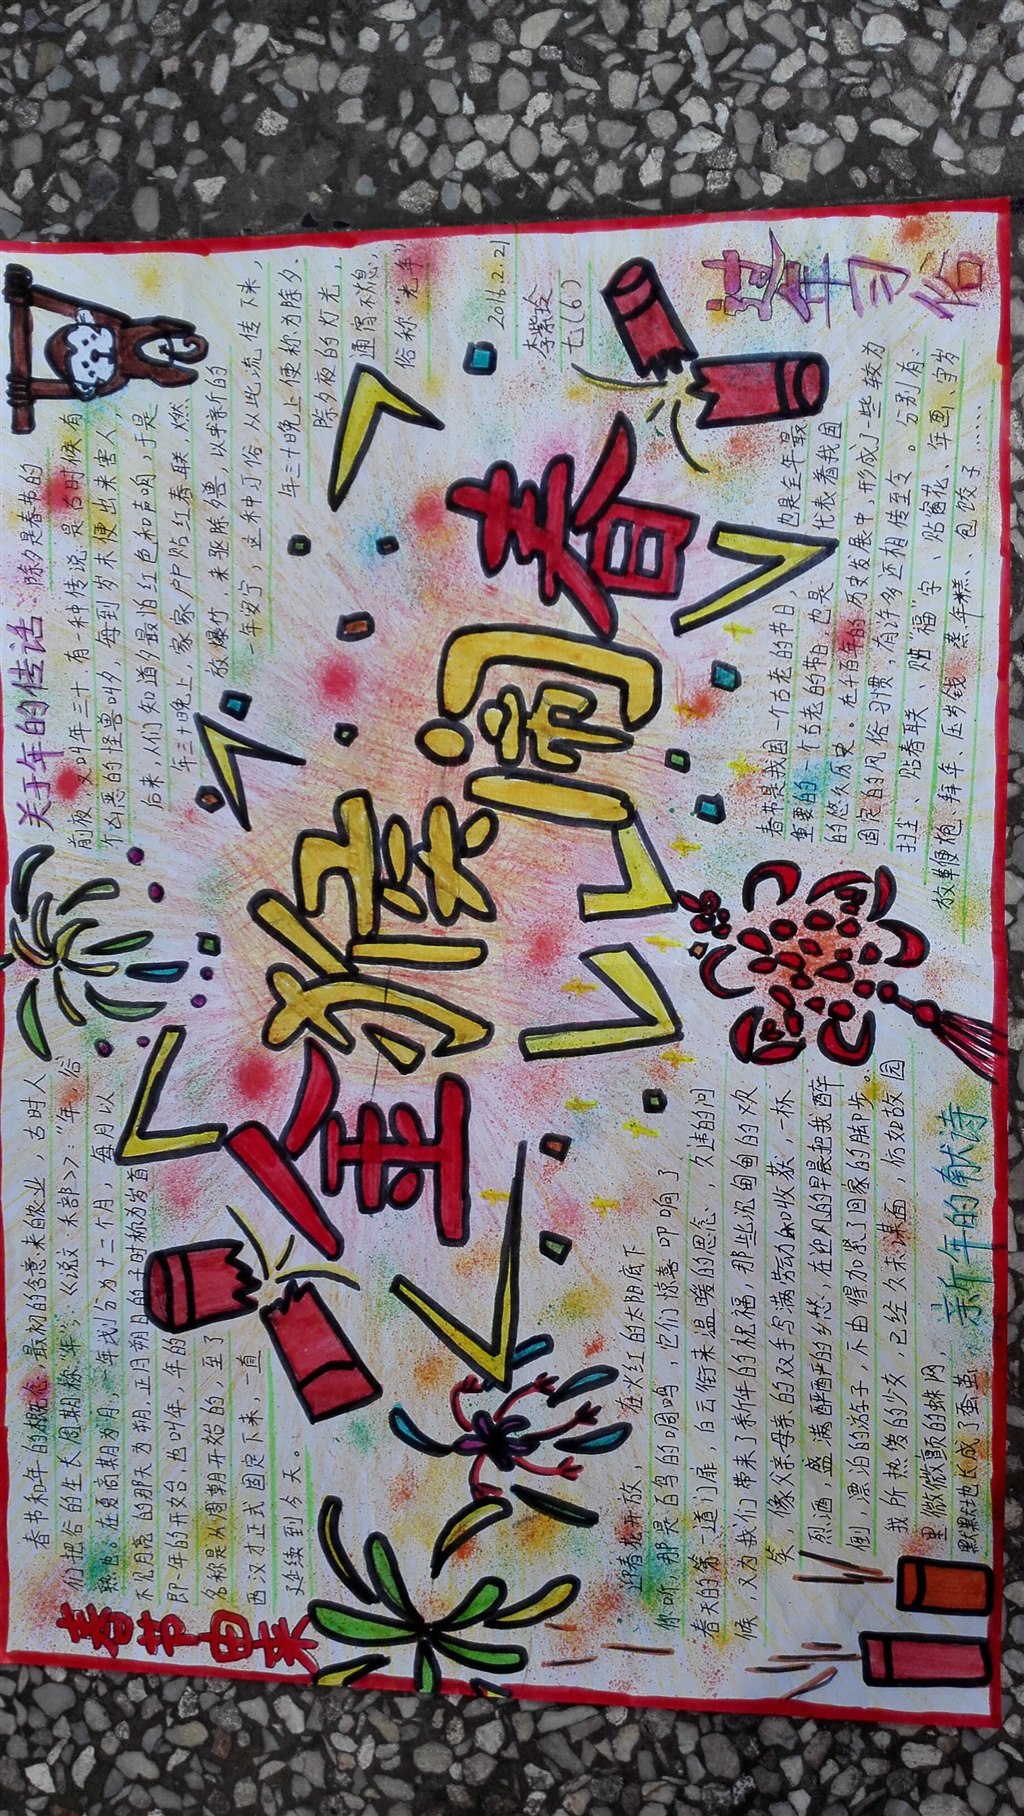 春节由来
春节和年的概念，最初的含意来自农业，古时人
们把谷的生长周期称"年"，《说文·禾部》："年，谷
熟也。在夏商时期为月，一年划分为十二个月，每月以
不见月亮的那天为朔，正月朔日的子时称为岁首
即一年的开始，也叫年，年的
名称是从周朝开始的，至了
西汉才正式固定下来，一直
延续到今天。
关于年的传话：除夕是春节的
前夜，又叫年三十，有一种传说：是古时候有
个凶恶的怪兽叫夕，每到岁末便出来害人，
后来，人们知道夕最怕红色和声响，于是
年三十晚上，家家户户贴红春联，燃
放爆竹 来驱除夕兽，以求新的
一年安宁，这种习俗从此流传下来，
年三十晚上便称为除夕
除夕夜的灯光，
通宵不息，
俗称"光年"
2016.2.21
李紫玲
七(6)
金猴闹春
迎春花开放，在火红的太阳底下
你听，那是百鸟的啁鸣，它们惊喜叩响了
春天的第一道门扉，白云衔来温暖的思念，久违的问
候，又为我们带来了新年的祝福，那些沉甸甸的欢
笑，像父亲母亲的双手写满劳动和收获，一杯
烈酒，盛满酽酽的乡愁，在迎风的早晨把我醉
倒，漂泊的游子，不由得加紧了回家的脚步。
我所热爱的少女，已经久未谋面，仿如故园
里微微颤的蛛网，
默默地长成了蚕茧
新年的献诗
春节是我国一个古老的节日，也是全年最
重要的一个古老的节日也是代表着我国
的悠久历史。在千百年的历史发展中，形成了一些较为
固定的风俗习惯，有许多还相传至今。分别有：
扫尘、贴春联、贴"福"字、贴窗花、年画、守岁
放鞭炮、拜年、压岁钱、蒸年糕、包饺子……
过年习俗